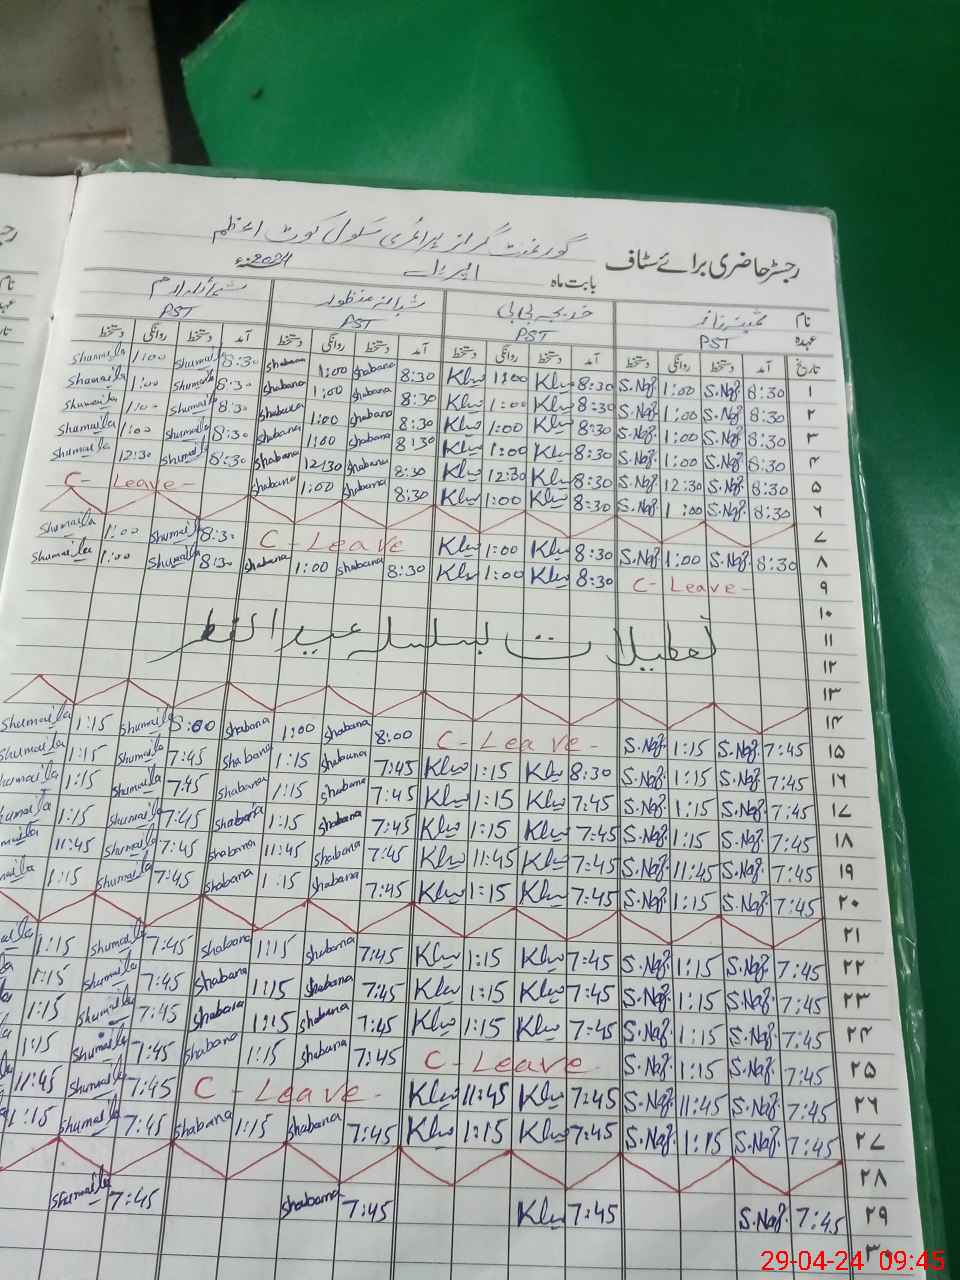 گورنمنٹ گرلز پرائمری سکول کوٹ اعظم
رجسٹر حاضری برائے سٹاف
بابت ماہ اپریل 2024ء
نام خدیجہ بی بی شبانہ منظور
عہدہ PST PST PST PST
تاریخ آمد دستخط روانگی دستخط آمد دستخط روانگی دستخط آمد دستخط روانگی دستخط آمد دستخط روانگی دستخط
۱ 8:30 S.Naz 1:00 S.Naz 8:30 1:00 8:30 shabana 1:00 shabana 8:30 Shumaila 1:00 Shumaila
۲ 8:30 S.Naz 1:00 S.Naz 8:30 1:00 8:30 shabana 1:00 shabana 8:30 Shumaila 1:00 Shumaila
۳ 8:30 S.Naz 1:00 S.Naz 8:30 1:00 8:30 shabana 1:00 shabana 8:30 Shumaila 1:00 Shumaila
۴ 8:30 S.Naz 1:00 S.Naz 8:30 1:00 8:30 shabana 1:00 shabana 8:30 Shumaila 1:00 Shumaila
۵ 8:30 S.Naz 12:30 S.Naz 8:30 12:30 8:30 shabana 12:30 shabana 8:30 Shumaila 12:30 Shumaila
۶ 8:30 S.Naz 1:00 S.Naz 8:30 1:00 8:30 shabana 1:00 shabana C- Leave-
۷
۸ 8:30 S.Naz 1:00 S.Naz 8:30 1:00 C-Leave 8:30 Shumaila 1:00 Shumaila
۹ C- Leave- 8:30 1:00 8:30 shabana 1:00 shabana 8:30 Shumaila 1:00 Shumaila
۱۰
۱۱ تعطیلات بسلسلہ عید الفطر
۱۲
۱۳
۱۴
۱۵ 7:45 S.Naz 1:15 S.Naz C-Leave- 8:00 shabana 1:00 shabana 8:00 Shumaila 1:15 Shumaila
۱۶ 7:45 S.Naz 1:15 S.Naz 8:30 1:15 7:45 shabana 1:15 shabana 7:45 Shumaila 1:15 Shumaila
۱۷ 7:45 S.Naz 1:15 S.Naz 7:45 1:15 7:45 shabana 1:15 shabana 7:45 Shumaila 1:15
۱۸ 7:45 S.Naz 1:15 S.Naz 7:45 1:15 7:45 shabana 1:15 shabana 7:45 Shumaila 1:15
۱۹ 7:45 S.Naz 11:45 S.Naz 7:45 11:45 7:45 shabana 11:45 shabana 7:45 Shumaila 11:45
۲۰ 7:45 S.Naz 1:15 S.Naz 7:45 1:15 7:45 shabana 1:15 shabana 7:45 Shumaila 1:15
۲۱
۲۲ 7:45 S.Naz 1:15 S.Naz 7:45 1:15 7:45 shabana 1:15 shabana 7:45 Shumaila 1:15
۲۳ 7:45 S.Naz 1:15 S.Naz 7:45 1:15 7:45 shabana 1:15 shabana 7:45 Shumaila 1:15
۲۴ 7:45 S.Naz 1:15 S.Naz 7:45 1:15 7:45 shabana 1:15 shabana 7:45 Shumaila 1:15
۲۵ 7:45 S.Naz 1:15 S.Naz C-Leave 7:45 shabana 1:15 shabana 7:45 Shumaila 1:15
۲۶ 7:45 S.Naz 11:45 S.Naz 7:45 11:45 C-Leave- 7:45 Shumaila 11:45
۲۷ 7:45 S.Naz 1:15 S.Naz 7:45 1:15 7:45 shabana 1:15 shabana 7:45 Shumaila 1:15
۲۸
۲۹ 7:45 S.Naz 7:45 7:45 shabana 7:45 Shumaila
۳۰
29-04-24 09:45